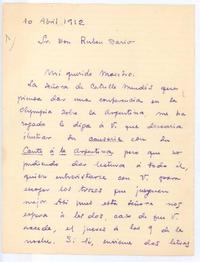 10 Abril, 1912
Sr. Don Ruben Dario
Mi querido Maestro:
La Señora de Catulle Mendés que
piensa dar una conferencia en la
Olympia sobre la Argentina, me ha
rogado le diga á V. que desearia
ilustrar su causerie con su
Canto á la Argentina, pero que no
pudiendo dar lectura á todo él,
quiere entrevistarse con V. para
escojer los trozos que juzguen
mejor. Ahi pues esta señora nos
espera á los dos, caso de que V.
acceda, el jueves á las 9 de la
noche. Si le, envieme dos letras